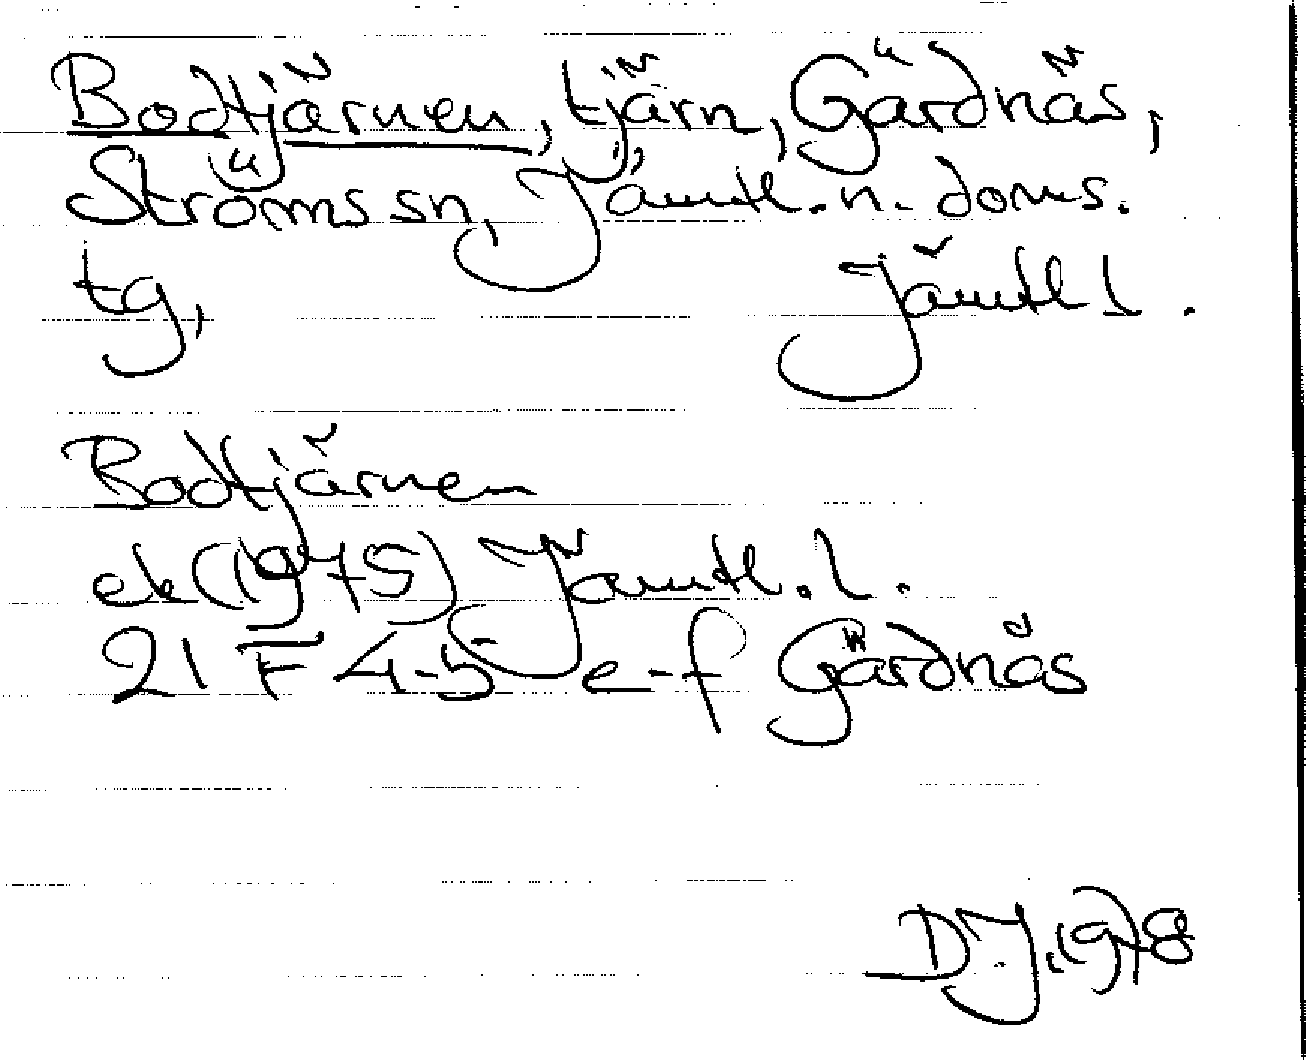 Bodtjärnen, tjärn, Gärdnäs,
Ströms sn, Jämtl. n. doms.
tg, Jämtl l.
Bodtjärnen
ek (1975) Jämtl. l.
21 F 4-5 e-f Gärdnäs
D.J. 1978